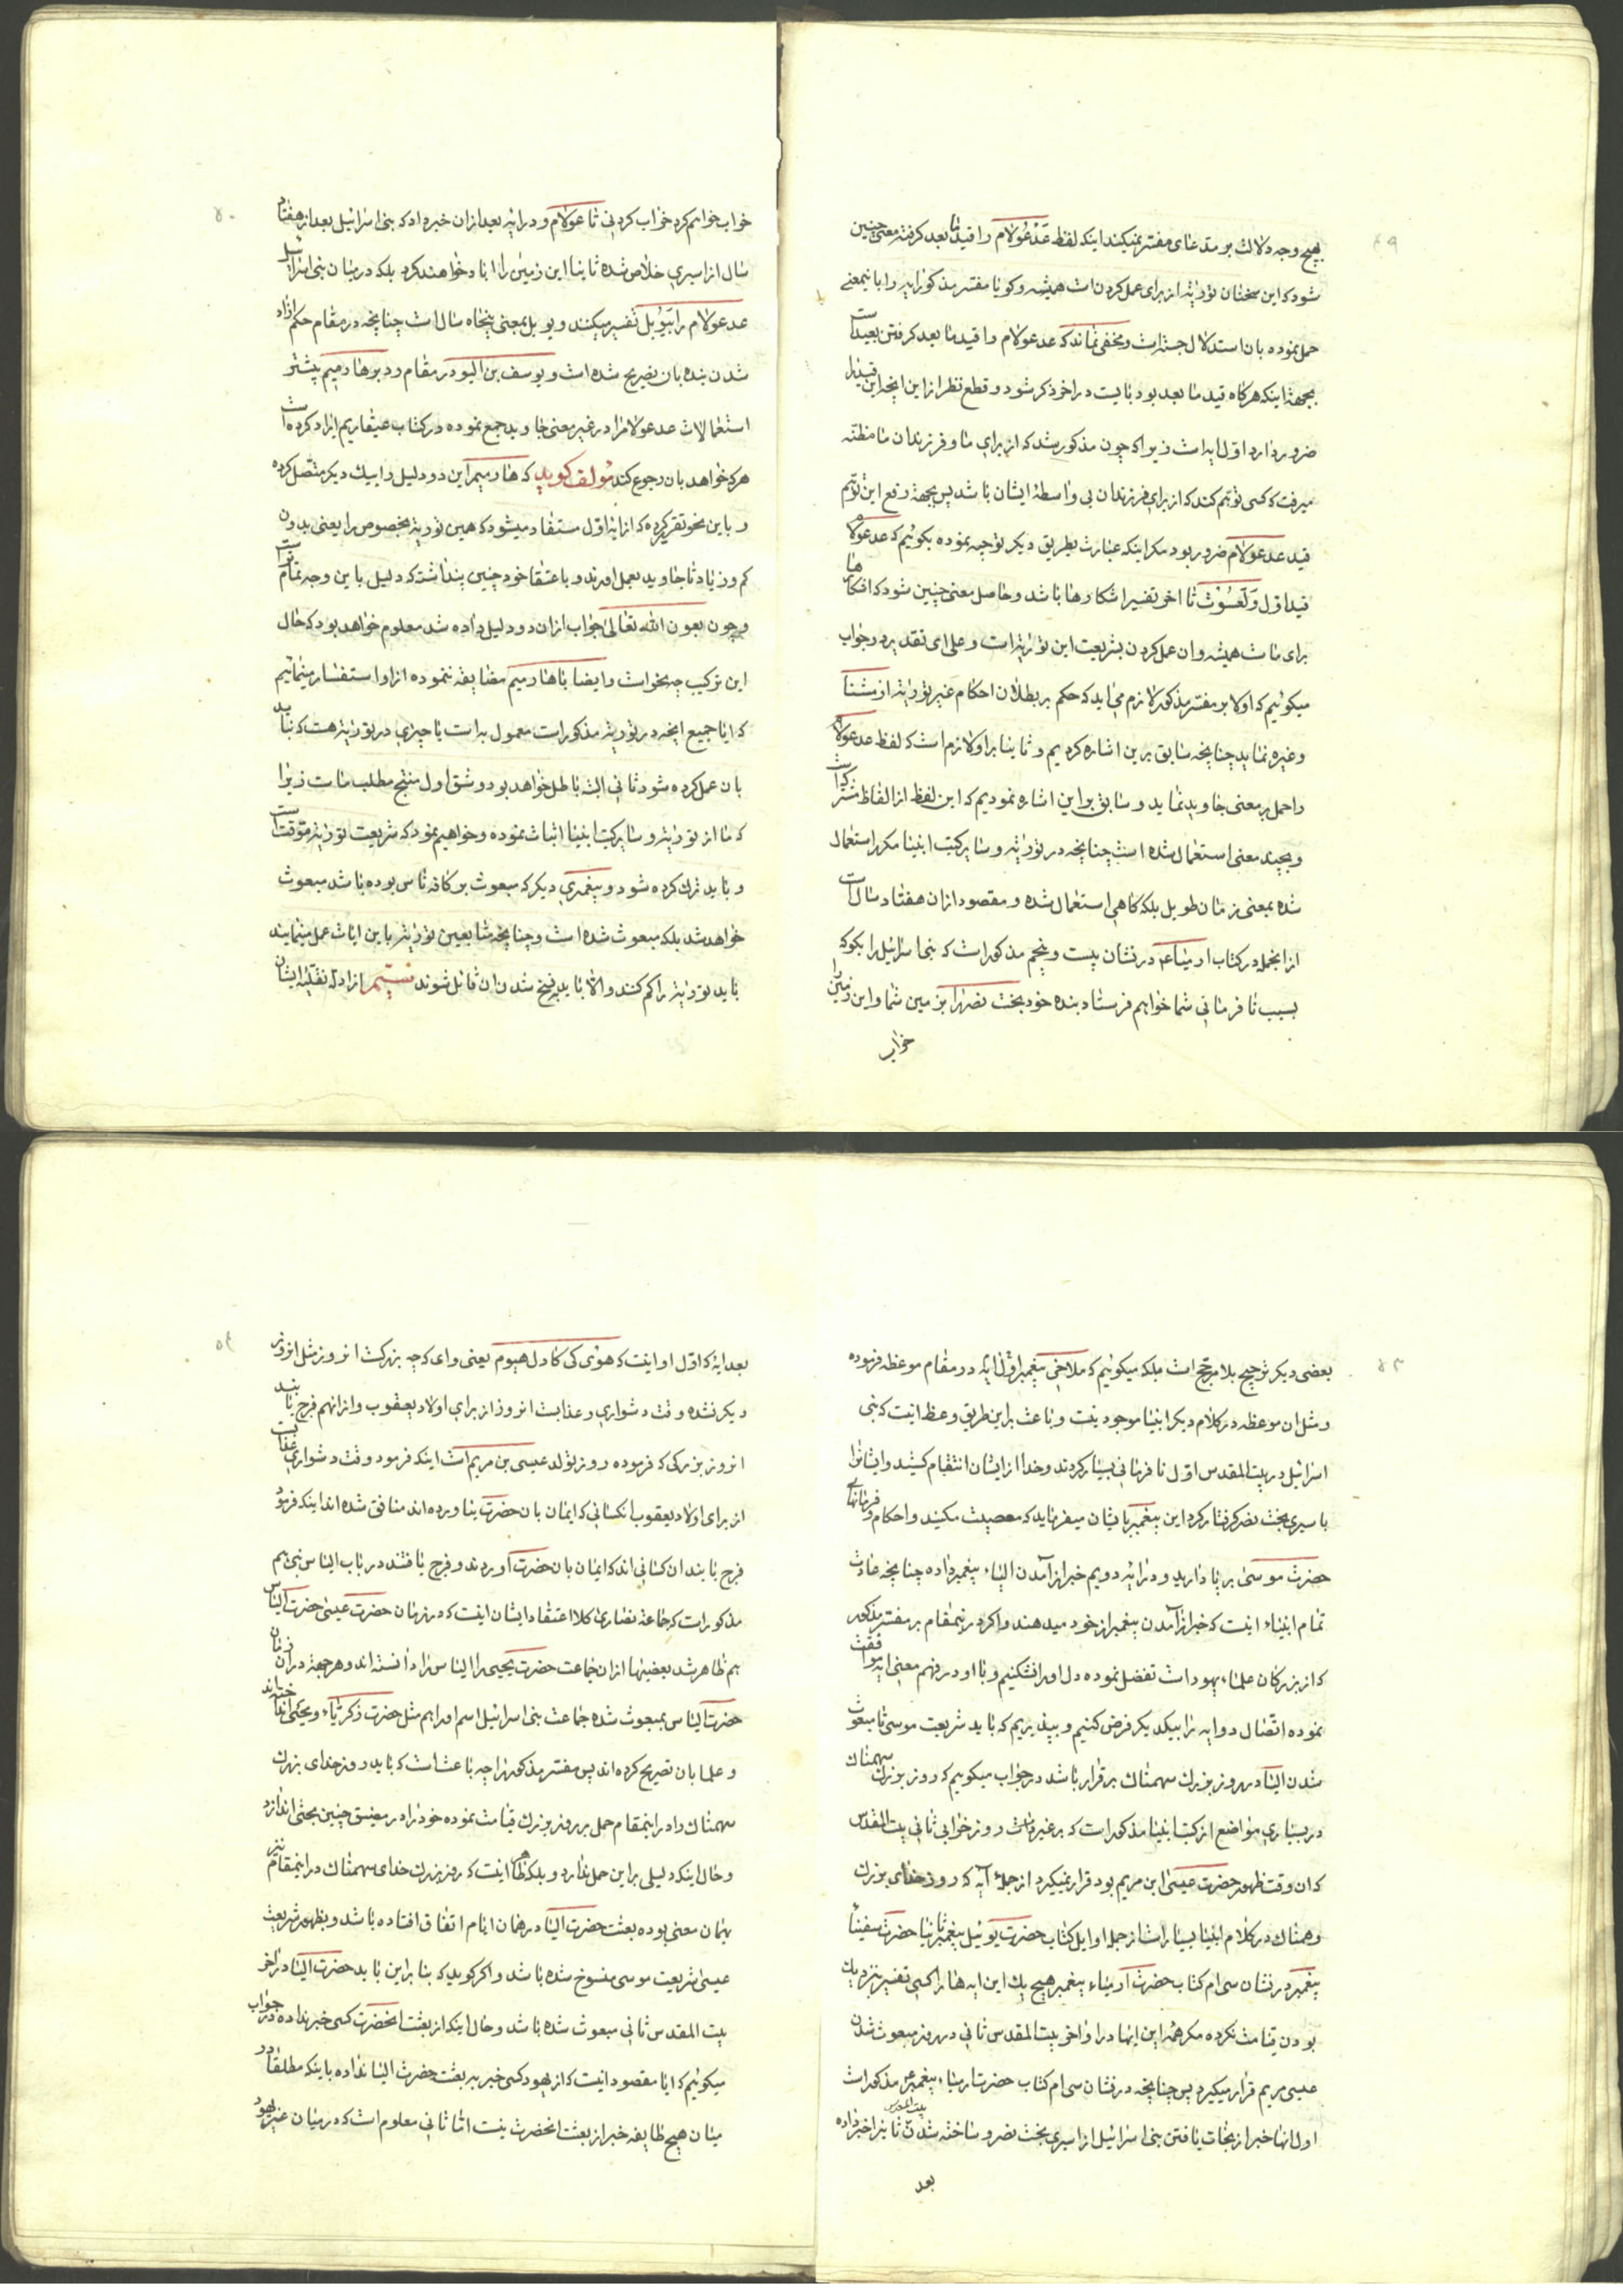 ۴۹
بهیچ وجه دلالت بر مدعای مفسر نمیکند اینکه لفظ عَدْعُولام را قید ما بعد کرفته معنی چنین
شود که این سخنان توریة از برای عمل کردن است همیشه و کویا مفسر مذکور ایه را باینمعنی
حمل نموده بان استدلال جسته است و مخفی نماند که عدعولام را قید ما بعد کرفتن بعید است
بجهة اینکه هرکاه قید ما بعد بود بایست در اخر ذکر شود و قطع نظر از این انچه این قید را
ضرور دارد اول ایه است زیرا که چون مذکور شد که از برای ما و فرزندان ما مظنه
میرفت که کسی توهم کند که از برای فرزندان بی واسطهٔ ایشان باشد پس بجهة رفع این توهم
قید عدعولام ضرور بود مکر اینکه عبارت بطریق دیکر توجیه نموده بکوئیم که عدعولا
قید اول وَلَعَسُوْت تا اخر تفسیر اشکارها باشد و حاصل معنی چنین شود که اشکارها
برای ماست همیشه و ان عمل کردن بشریعت این توریة است و علی ای تقدیر در جواب
میکوئیم که اولا بر مفسر مذکور لازم می اید که حکم بر بطلان احکام غیر توریة از مشنا
و غیره نماید چنانچه سابق بر این اشاره کردیم و ثانیا بر او لازم است که لفظ عدعولام
را حمل بر معنی جاوید نماید و سابق بر این اشاره نمودیم که این لفظ از الفاظ مشترک است
و بچند معنی استعمال شده است چنانچه در توریة و سایر کتب انبیا مکرر استعمال
شده بمعنی زمان طویل بلکه کاهی استعمال شده و مقصود از ان هفتاد سال است
از انجمله در کتاب ارمیاء در نشان بیست و پنجم مذکور است که بنی اسرائیل را بکو که
بسبب نافرمانی شما خواهم فرستاد بنده خود بخت نصر را بزمین شما و این زمین را
خراب
۵۰
خراب خواهم کرد خراب کردنی تا عولام و در ایه بعد از ان خبر داد که بنی اسرائیل بعد از هفتاد
سال از اسیری خلاص شده ثانیا این زمین را اباد خواهند کرد بلکه در میان بنی اسرائیل
عدعولام را بیوبل تفسیر میکنند و یوبل بمعنی پنجاه سال است چنانچه در مقام حکم ازاد
شدن بنده بان تصریح شده است و یوسف بن البو در مقام رد بر هادمیم بیشتر
استعمالات عدعولام را در غیر معنی جاوید جمع نموده در کتاب عیقاریم ایراد کرده است
هرکه خواهد بان رجوع کند مولف کوید که هارمیم این دو دلیل را بیک دیکر متصل کرده
و باین نحو تقریر کرده که از ایه اول مستفاد میشود که همین توریة بخصوص را یعنی بدون
کم و زیاد تا جاوید بعمل اورند و باعتقاد خود چنین پنداشته که دلیل باین وجه تمام است
و چون بعون الله تعالی جواب از ان دو دلیل داده شد معلوم خواهد بود که حال
این ترکیب چه نحو است و ایضا با هارمیم مضایقه ننموده از او استفسار مینمائیم
که ایا جمیع انچه در توریة مذکور است معمول به است یا چیزی در توریة هست که نباید
بان عمل کرده شود ثانی البته باطل خواهد بود و شق اول منتج مطلب ماست زیرا
که ما از توریة و سایر کتب انبیا اثبات نموده و خواهیم نمود که شریعت توریة موقت است
و باید ترک کرده شود و پیغمبری دیکر که مبعوث بر کافه ناس بوده باشد مبعوث
خواهد شد بلکه مبعوث شده است و چنانچه متابعین توریة باین ایات عمل مینمایند
باید توریة را کم کنند و الا باید بنسخ شدن ان قائل شوند ششم از ادله نقلیه ایشان
۵۳
بعضی دیکر ترجیح بلا مرجح است بلکه میکوئیم که ملاخی پیغمبر اول ایه در مقام موعظه فرموده
و مثل ان موعظه در کلام دیکر انبیا موجود نیست و باعث بر این طریق وعظ اینست که بنی
اسرائیل در بیت المقدس اول نافرمانی بسیار کردند و خدا از ایشان انتقام کشید و ایشانرا
باسیری بخت نصر کرفتار کرد این پیغمبر بایشان میفرماید که معصیت مکنید و احکام و فرمانهای
حضرت موسی برپا دارید و در ایه دویم خبر از آمدن الیاء پیغمبر داده چنانچه عادت
تمام انبیاء اینست که خبر از آمدن پیغمبر از خود میدهند و اکر در اینمقام بر مفسر مذکور
که از بزرکان علماء یهود است تفضل نموده دل او را نشکنیم و با او در فهم معنی ایه موافقت
نموده اتصال دو ایه را بیکدیکر فرض کنیم و بپذیریم که باید شریعت موسی تا مبعوث
شدن الیا در روز بزرک سهمناک برقرار باشد در جواب میکوییم که روز بزرک سهمناک
در بسیاری مواضع از کتب انبیا مذکور است که بر غیر وقت روز خرابی ثانی بیت المقدس
که ان وقت ظهور حضرت عیسی ابن مریم بود قرار نمیکیرد از جمله آیه که روز خدای بزرک
وهمناک در کلام انبیا بسیار است از جمله اوایل کتاب حضرت یوئیل پیغمبر ثانیا حضرت سفنیا
پیغمبر در نشان سی ام کتاب حضرت ارمیاء پیغمبر هیچ یک این ایه ها را کسی تفسیر بنزدیک
بودن قیامت نکرده مکر همه این ایها در اواخر بیت المقدس ثانی در روز مبعوث شدن
عیسی مریم قرار میکیرد پس چنانچه در نشان سی ام کتاب حضرت ارمیاء پیغمبر مذکور است
اول انها خبر از نجات یافتن بنی اسرائیل از اسیری بخت نصر و ساخته شدن بیت المقدس ثانیرا خبر داده
بعد
۵۴
بعد ایهٔ که اول او اینست که هوی کی کادل هیوم یعنی وای که چه بزرکست انروز مثل انروز
دیکر نشده وقت دشواری و عذابست انروز از برای اولاد یعقوب و از انهم فرج یابند
انروز بزرکی که فرموده روز تولد عیسی بن مریم است اینکه فرمود وقت دشواری عذابست
از برای اولاد یعقوب انکسانی که ایمان بان حضرت نیاورده اند منافق شده اند اینکه فرمود
فرج یابند ان کسانی اند که ایمان بان حضرت آوردند و فرج یافتند در باب الیاس نبی هم
مذکور است که جماعهٔ نصاری کلا اعتقاد ایشان اینست که در زمان حضرت عیسی حضرت الیاس
هم ظاهر شد بعضیها از ان جماعت حضرت یحیی را الیاس نراد دانسته اند و هر جهة در ان زمان
حضرت الیاس مبعوث شده جماعت بنی اسرائیل اسم او را هم مثل حضرت زکریاء و یحیی
و علما بان تصریح کرده اند پس مفسر مذکور را چه باعث است که باید روز خدای بزرک
سهمناک را در اینمقام حمل بر روز بزرک قیامت نموده خود را در مضیق چنین بحثی اندازد
و حال اینکه دلیلی بر این حمل ندارد و بلکه ظاهر اینست که روز بزرک خدای سهمناک در اینمقام نیز
بهمان معنی بوده بعثت حضرت الیا در همان ایام اتفاق افتاده باشد و بظهور شریعت
عیسی شریعت موسی منسوخ شده باشد و اکر کوید که بنا بر این باید حضرت الیا در اخر
بیت المقدس ثانی مبعوث شده باشد و حال اینکه از بعثت انحضرت کسی خبر نداده در جواب
میکوئیم که ایا مقصود اینست که از یهود کسی خبر به بعثت حضرت الیا نداده یا اینکه مطلقا در
میان هیچ طایفه خبر از بعثت انحضرت نیست اما ثانی معلوم است که در میان غیر یهود